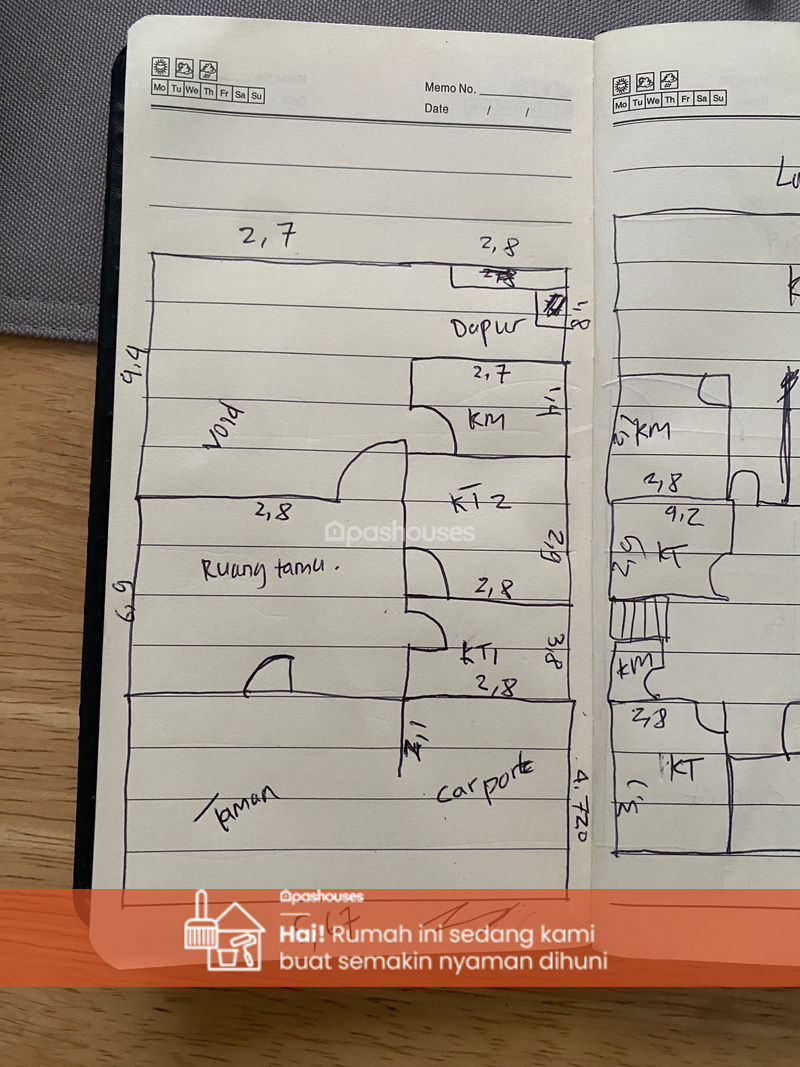 Mo Tu We Th Fr Sa Su
Memo No.
Date / /
2,7
2,8
1,8
Dapur
9,4
2,7
1,4
KM
Void
KT 2
2,8
2,9
Ruang tamu.
2,8
6,9
3,8
KT1
2,8
4,720
Carport
Taman
Mo Tu We Th Fr Sa Su
KM
2,8
9,2
KT
KM
2,8
KT
pashouses
pashouses
Hai! Rumah ini sedang kami
buat semakin nyaman dihuni